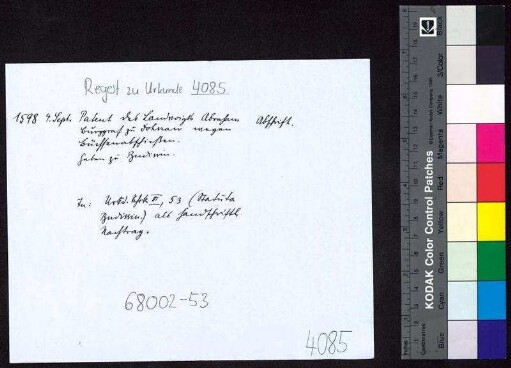 Regest zu Urkunde 4085
1598 4. Sept. Patent des Landvogts Abraham Abschrift.
Burggraf zu Dohnau wegen
Büchsenabschießen.
Geben zu Budissin.
In: Urkd. II, 53 (Statuta
Budissin.) als handschriftl.
Nachtrag.
68002-53
4085
KODAK Color Control Patches
Black
3/Color
White
Magenta
Red
Yellow
Green
Cyan
Blue
Centimetres